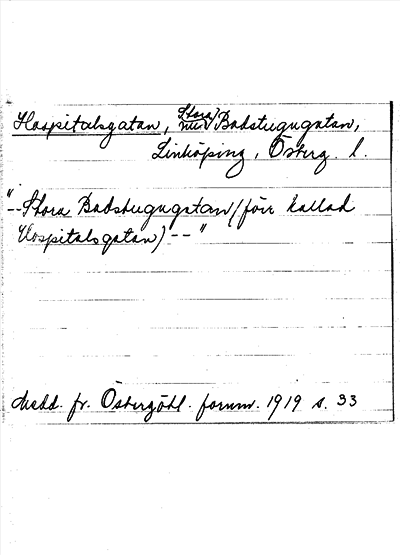 Hospitalsgatan, Stora nu Badstugugatan,
Linköping, Österg. l.
"-- Stora Badstugugatan (förr kallad
Hospitalsgatan) -- "
Medd. fr. Östergötl. fornm. 1919 s. 33